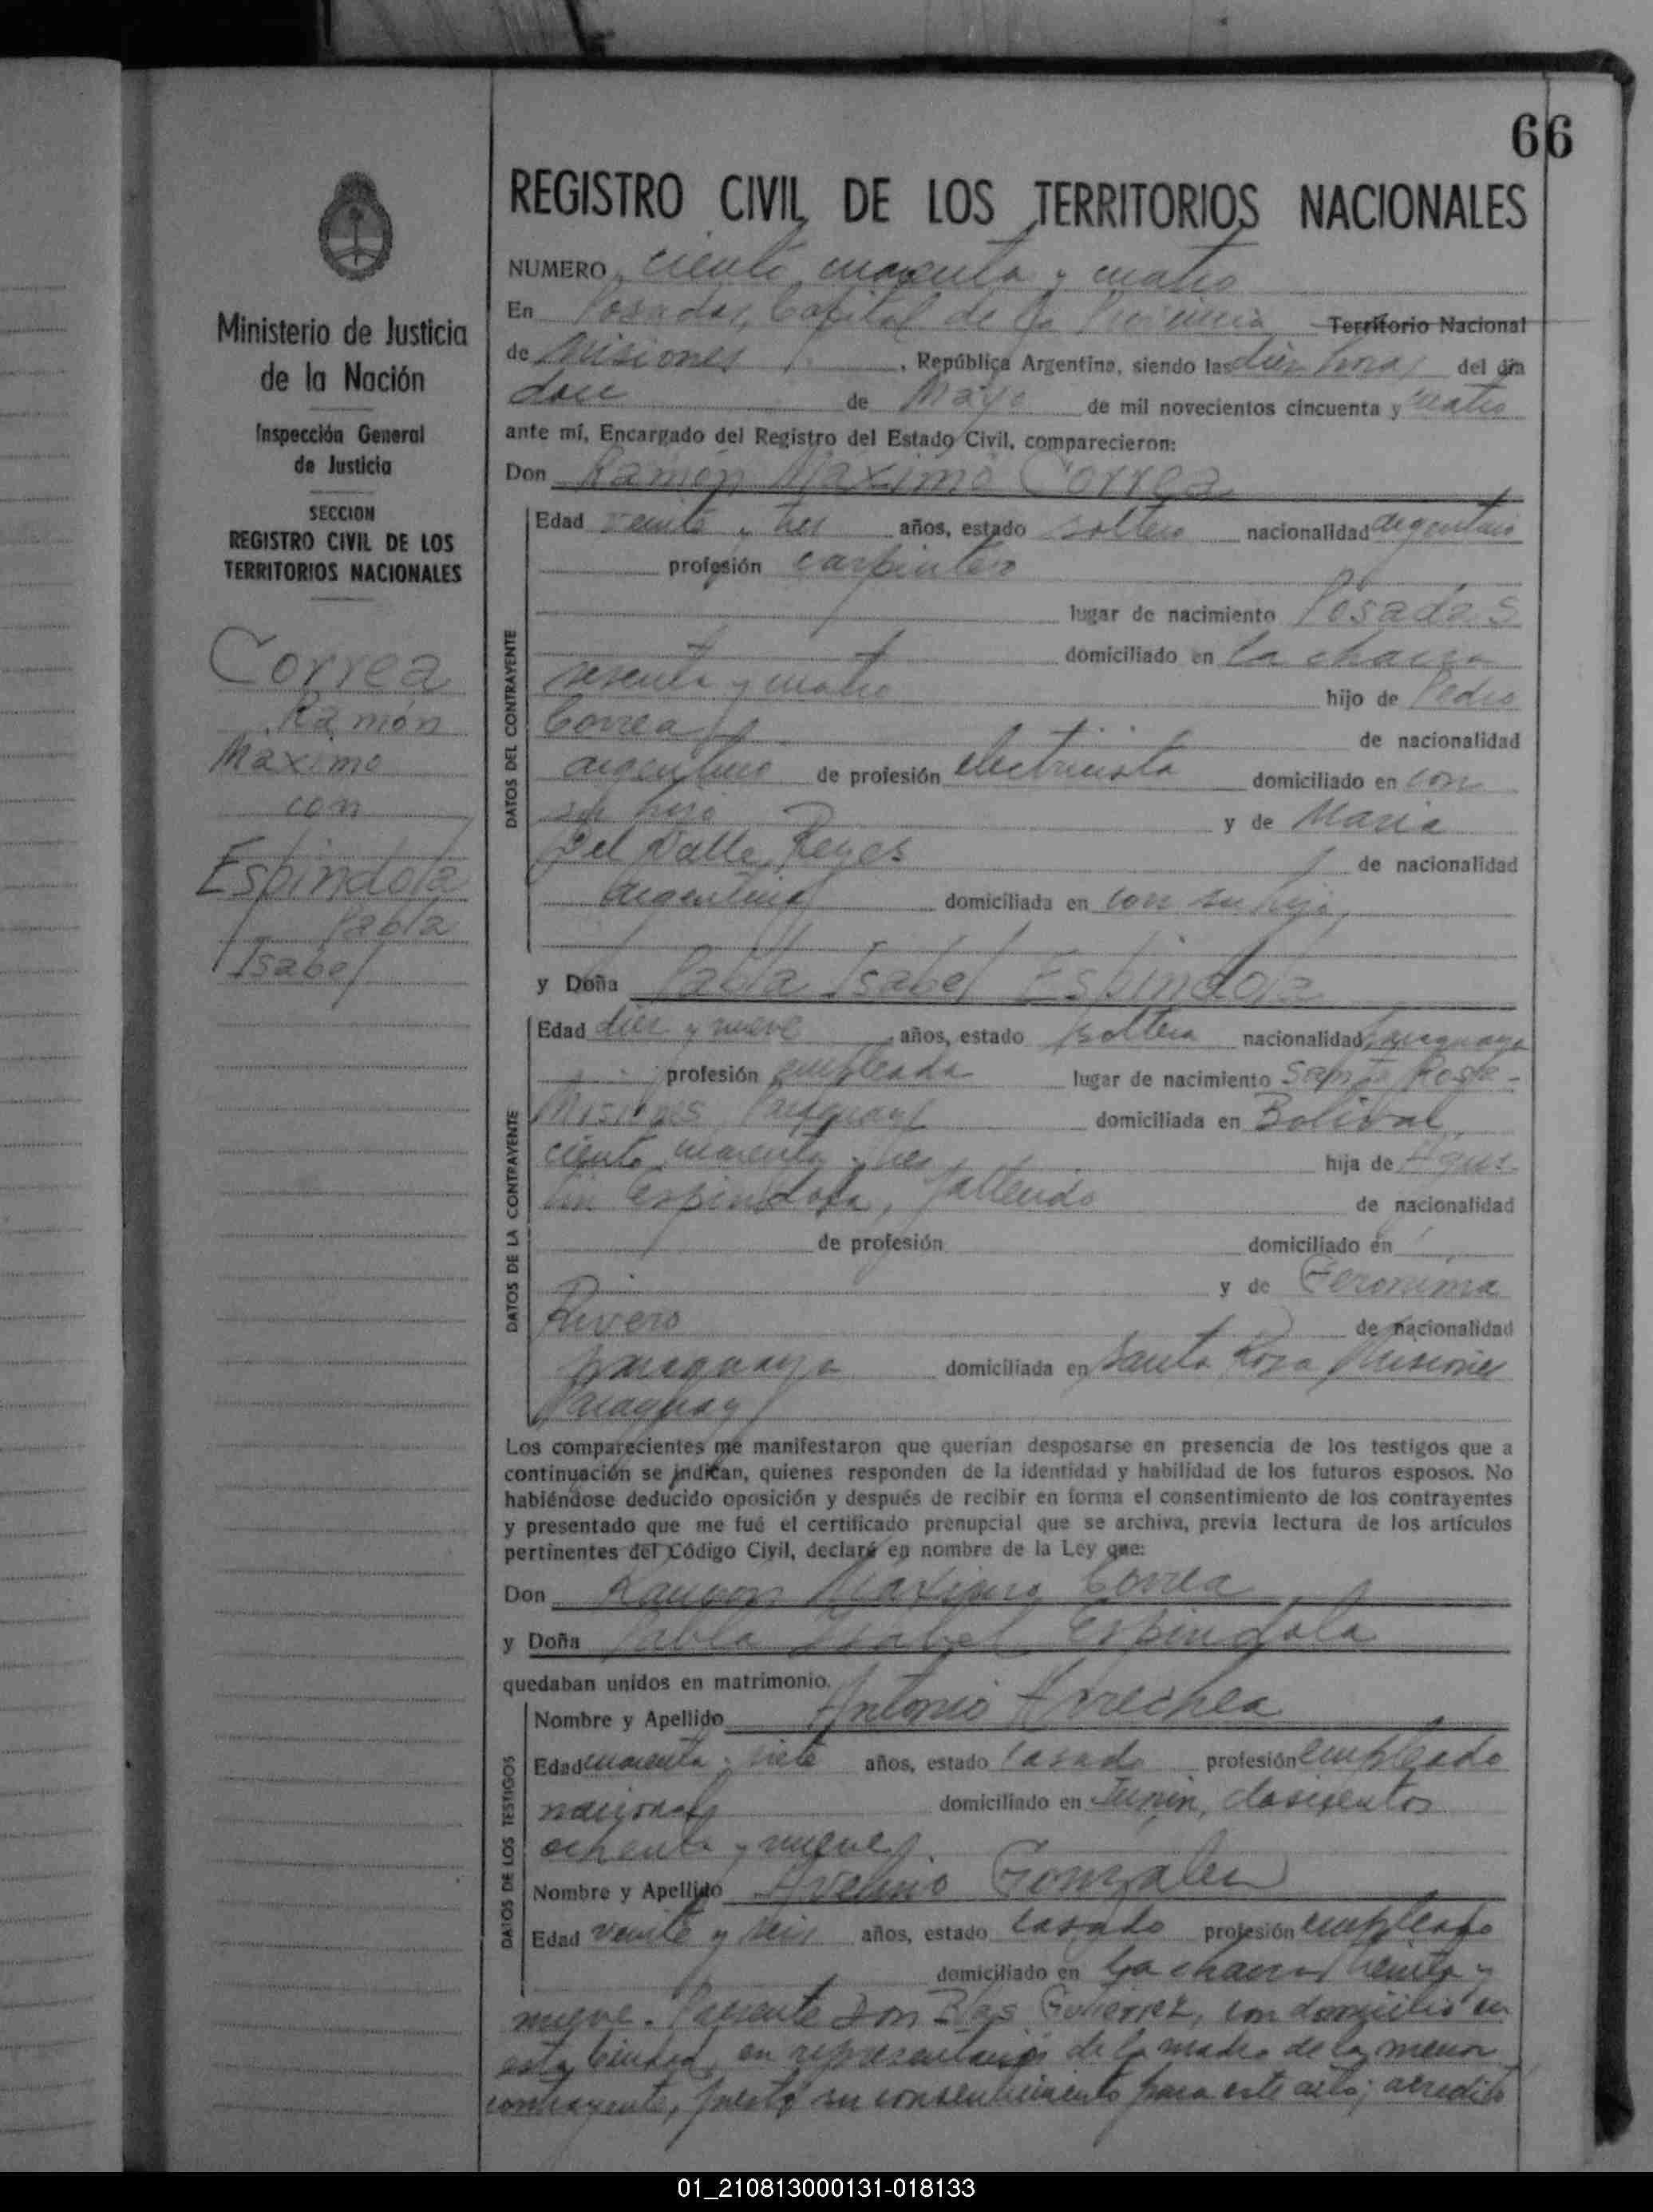 66
REGISTRO CIVIL DE LOS TERRITORIOS NACIONALES
Ministerio de Justicia
de la Nación
Inspección General
de Justicia
SECCION
REGISTRO CIVIL DE LOS
TERRITORIOS NACIONALES
Correa
Ramón
Máximo
con
Espindola
Pabla
Isabel
NUMERO ciento cuarenta y cuatro
En Posadas, Capital de la Provincia Territorio Nacional
de Misiones, República Argentina, siendo las diez horas del día
doce de Mayo de mil novecientos cincuenta y cuatro
ante mí, Encargado del Registro del Estado Civil, comparecieron:
Don Ramón Máximo Correa
DATOS DEL CONTRAYENTE
Edad veinte y tres años, estado soltero nacionalidad argentino
profesión carpintero
lugar de nacimiento Posadas
domiciliado en la chacra
sesenta y cuatro hijo de Pedro
Correa de nacionalidad
argentino de profesión electricista domiciliado en con
su hijo y de Maria
Del Valle Reyes de nacionalidad
argentina domiciliada en con su hijo,
y Doña Pabla Isabel Espindola
DATOS DE LA CONTRAYENTE
Edad diez y nueve años, estado soltera nacionalidad paraguaya
profesión empleada lugar de nacimiento Santa Rosa -
Misiones Paraguay domiciliada en Bolivar
ciento cuarenta y tres hija de Agus-
tin Espindola, fallecido de nacionalidad
de profesión domiciliado en
y de Geronima
Rivero de nacionalidad
paraguaya domiciliada en Santa Rosa Misiones
Paraguay
Los comparecientes me manifestaron que querían desposarse en presencia de los testigos que a
continuación se indican, quienes responden de la identidad y habilidad de los futuros esposos. No
habiéndose deducido oposición y después de recibir en forma el consentimiento de los contrayentes
y presentado que me fué el certificado prenupcial que se archiva, previa lectura de los artículos
pertinentes del Código Civil, declaré en nombre de la Ley que:
Don Ramon Maximo Correa
y Doña Pabla Isabel Espindola
quedaban unidos en matrimonio.
DATOS DE LOS TESTIGOS
Nombre y Apellido Antonio Arrechea
Edad cuarenta y siete años, estado casado profesión empleado
nacional domiciliado en Junin, doscientos
ochenta y nueve
Nombre y Apellido Avelino Gonzalez
Edad veinte y seis años, estado casado profesión empleado
domiciliado en la chacra treinta y
nueve. Presente Don Blas Gutierrez, con domicilio en
esta Ciudad, en representación de la madre de la menor
contrayente, prestó su consentimiento para este acto; acredito
01_210813000131-018133